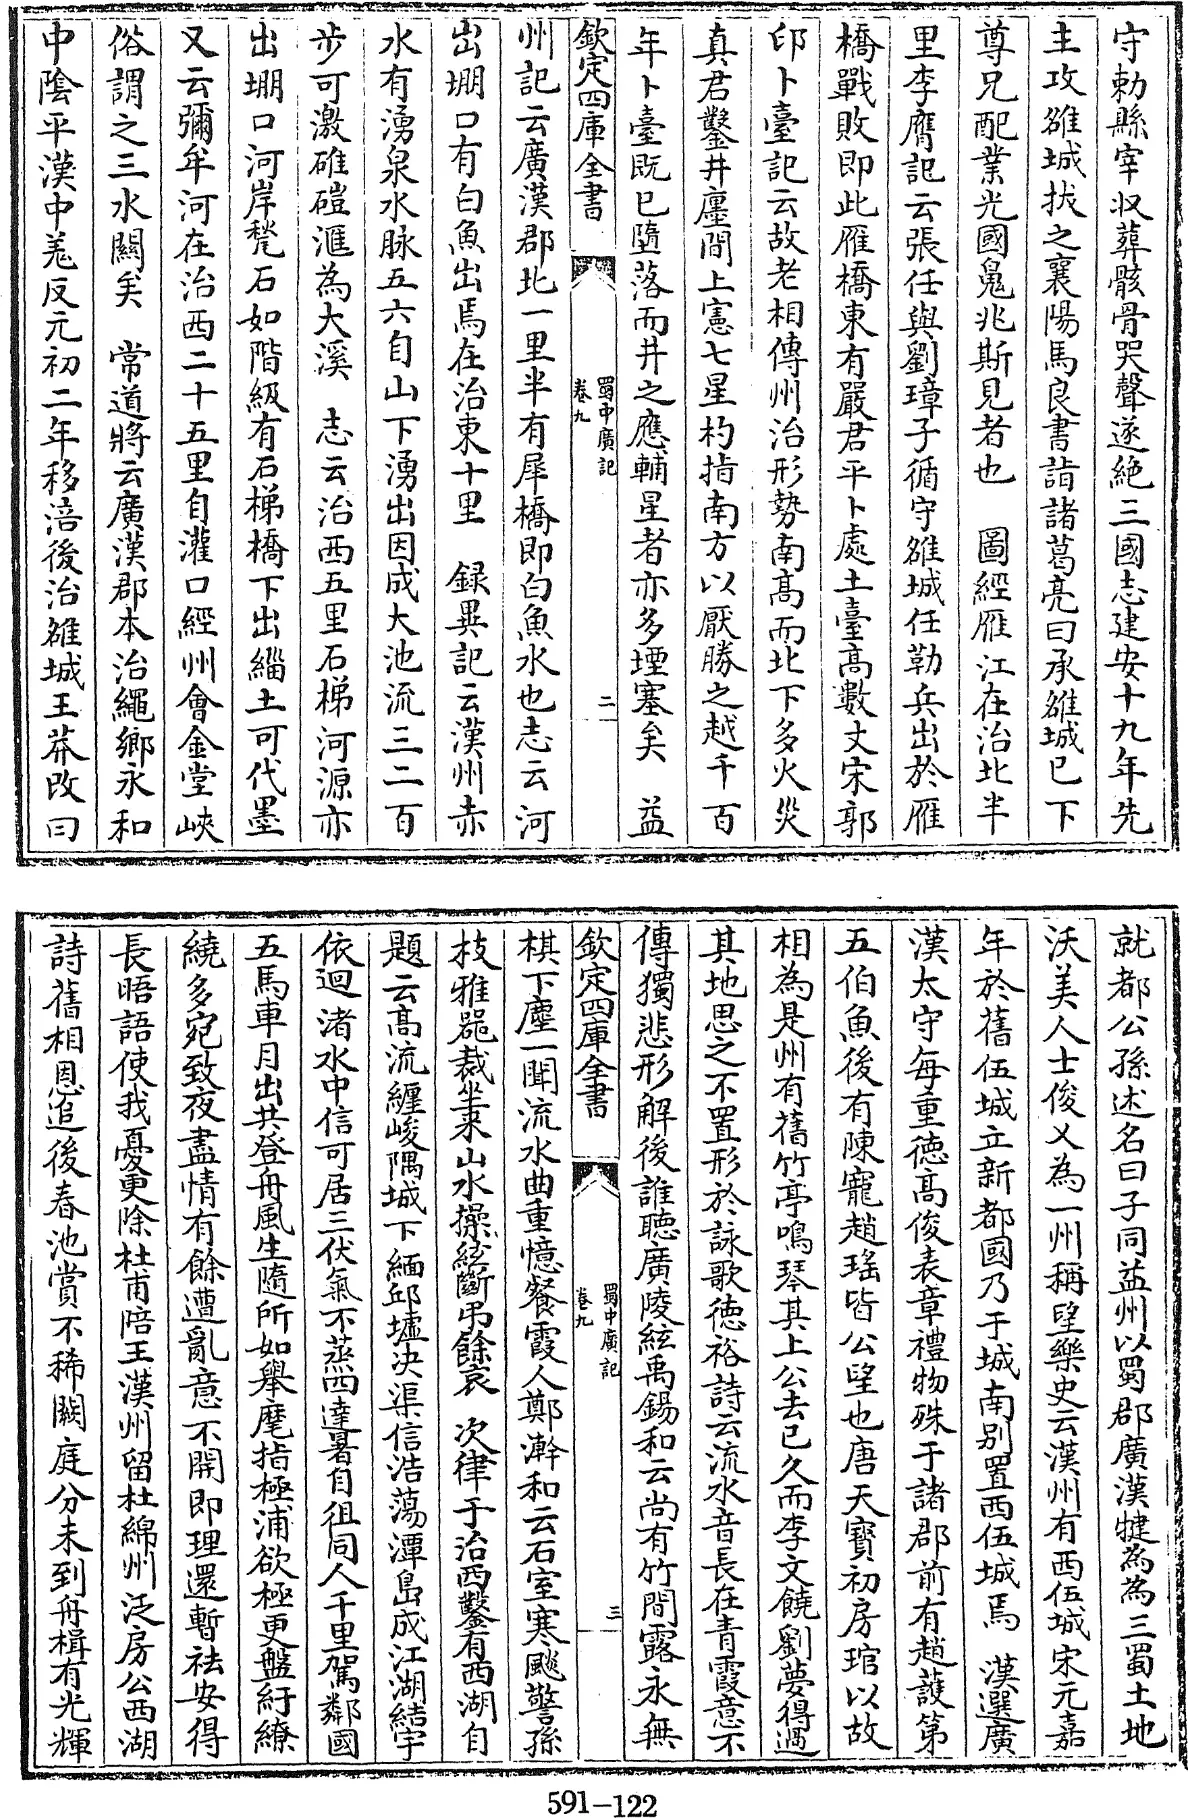 守勅縣宰收葬骸骨哭聲遂絶三國志建安十九年先
主攻雒城拔之襄陽馬良書詣諸葛亮曰承雒城已下
尊兄配業光國鬼兆斯見者也　圖經雁江在治北半
里李膺記云張任與劉璋子循守雒城任勒兵出於雁
橋戰敗即此雁橋東有嚴君平卜處土臺髙數丈宋郭
印卜臺記云故老相傳州治形勢南髙而北下多火災
真君鑿井廛間上憲七星杓指南方以厭勝之越千百
年卜臺既已隨落而井之應輔星者亦多堙塞矣　益
欽定四庫全書
蜀中廣記
卷九
二
州記云廣漢郡北一里半有犀橋即白魚水也志云河
出堋口有白魚出焉在治東十里　録異記云漢州赤
水有湧泉水脉五六自山下湧出因成大池流三二百
步可激碓磑滙為大溪　志云治西五里石梯河源亦
出堋口河岸甃石如階級有石梯橋下出緇土可代墨
又云彌牟河在治西二十五里自灌口經州會金堂峽
俗謂之三水關矣　常道將云廣漢郡本治繩鄉永和
中陰平漢中羌反元初二年移涪後治雒城王莽改曰
就都公孫述名曰子同益州以蜀郡廣漢犍為為三蜀土地
沃美人士俊乂為一州稱望樂史云漢州有西伍城宋元嘉
年於舊伍城立新都國乃于城南别置西伍城焉　漢選廣
漢太守每重徳髙俊表章禮物殊于諸郡前有趙護第
五伯魚後有陳寵趙瑤皆公望也唐天寳初房琯以故
相為是州有舊竹亭鳴琴其上公去已久而李文饒劉夢得過
其地思之不置形於詠歌徳裕詩云流水音長在青霞意不
傳獨悲形解後誰聴廣陵絃禹錫和云尚有竹間露永無
欽定四庫全書
蜀中廣記
卷九
三
棋下塵一聞流水曲重憶餐霞人鄭澣和云石室寒飈警孫
枝雅器裁坐来山水操絃斷弔餘哀　次律于治西鑿有西湖自
題云髙流纏峻隅城下緬邱墟決渠信浩蕩潭島成江湖結宇
依迴渚水中信可居三伏氣不蒸四達暑自徂同人千里駕鄰國
五馬車月出共登舟風生隨所如舉麾指極浦欲極更盤紆繚
繞多宛致夜盡情有餘遭亂意不開即理還暫袪安得
長晤語使我憂更除杜甫陪王漢州留杜綿州泛房公西湖
詩舊相恩追後春池賞不稀闕庭分未到舟楫有光輝
591-122